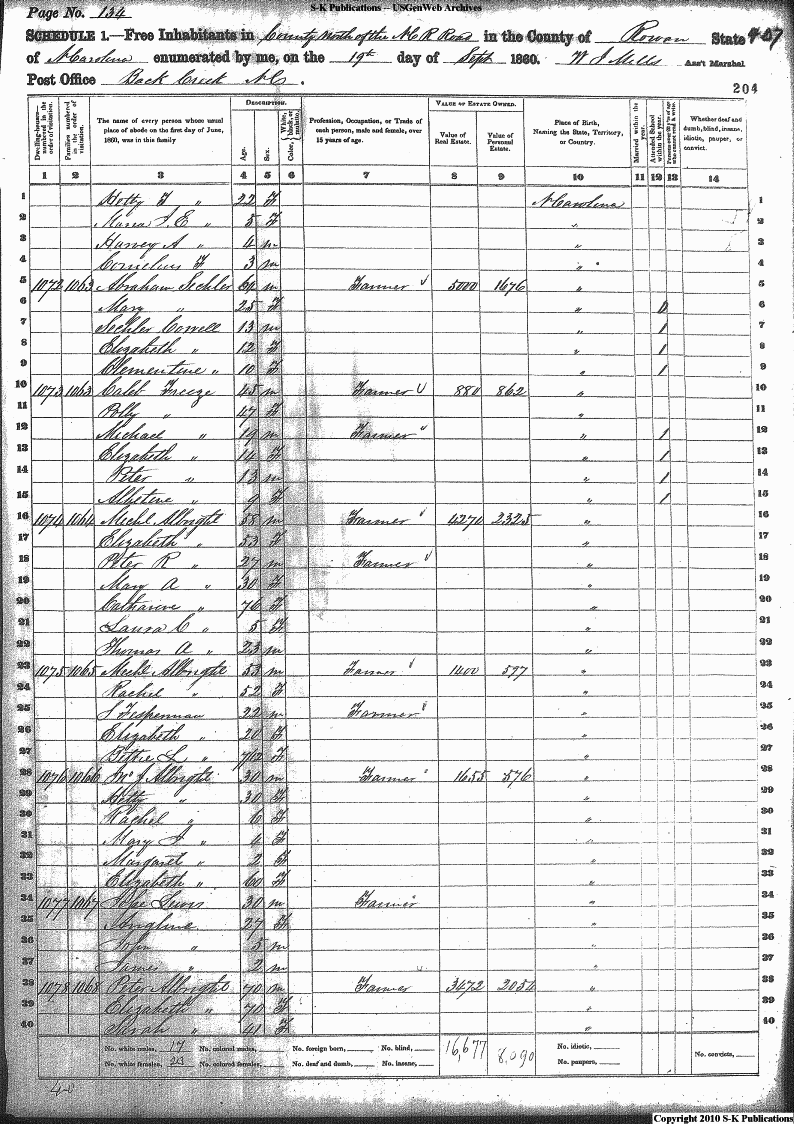 S-K Publications -- USGenWeb Archives
Page No. 134
SCHEDULE 1.—Free Inhabitants in County North of the N.C.R. Road in the County of Rowan State 407
of N Carolina enumerated by me, on the 19th day of Sept 1860. W J Mills Ass't Marshal
Post Office Back Creek NC.
204
DESCRIPTION. VALUE OF ESTATE OWNED.
Dwelling-houses—numbered in the order of visitation. Families numbered in the order of visitation. The name of every person whose usual place of abode on the first day of June, 1860, was in this family Age. Sex. Color, White, black, or mulatto. Profession, Occupation, or Trade of each person, male and female, over 15 years of age. Value of Real Estate. Value of Personal Estate. Place of Birth, Naming the State, Territory, or Country. Married within the year. Attended School within the year. Persons over 20 y'rs of age who cannot read & write. Whether deaf and dumb, blind, insane, idiotic, pauper, or convict.
1 2 3 4 5 6 7 8 9 10 11 12 13 14
1 Hetty J " 22 F N Carolina 1
2 Maria S E " 5 F " 2
3 Harvey A " 4 m " 3
4 Cornelius F 3 m " 4
5 1072 1063 Abraham Sechler 62 m Farmer 5000 1676 " 5
6 Mary " 25 F " 6
7 Sechler Correll 13 m " 1 7
8 Elizabeth " 12 F " 1 8
9 Clementine " 10 F " 1 9
10 1073 1063 Caleb Freeze 45 m Farmer 880 862 " 10
11 Polly " 47 F " 11
12 Michael " 19 m Farmer " 1 12
13 Elizabeth " 14 F " 1 13
14 Peter " 13 m " 1 14
15 " 9 F " 1 15
16 1074 1064 Michl Albright 58 m Farmer 4270 2325 " 16
17 Elizabeth " 53 F " 17
18 Peter R " 27 m Farmer " 18
19 Mary A " 30 F " 19
20 Catharine " 76 F " 20
21 Laura C " 5 F " 21
22 Thomas A " 23 m " 22
23 1075 1065 Michl Albright 53 m Farmer 1400 597 " 23
24 Rachel " 52 F " 24
25 S Fesperman 22 m Farmer " 25
26 Elizabeth " 20 F " 26
27 Bettie L " 7/12 F " 27
28 1076 1066 Jno J Albright 30 m Farmer 1655 576 " 28
29 Hetty " 30 F " 29
30 Rachel " 6 F " 30
31 Mary J " 4 F " 31
32 Margaret " 2 F " 32
33 Elizabeth " 60 F " 33
34 1077 1067 Lewis 30 m Farmer " 34
35 Angline 27 F " 35
36 John " 5 m " 36
37 James " 2 m " 37
38 1078 1068 Peter Albright 70 m Farmer 3472 2054 " 38
39 Elizabeth " 70 F " 39
40 Sarah " 41 F " 40
No. white males, 17 No. colored males, No. foreign born, No. blind, 16,677 8,090 No. idiotic,
No. white females, 23 No. colored females, No. deaf and dumb, No. insane, No. paupers, No. convicts,
Copyright 2010 S-K Publications